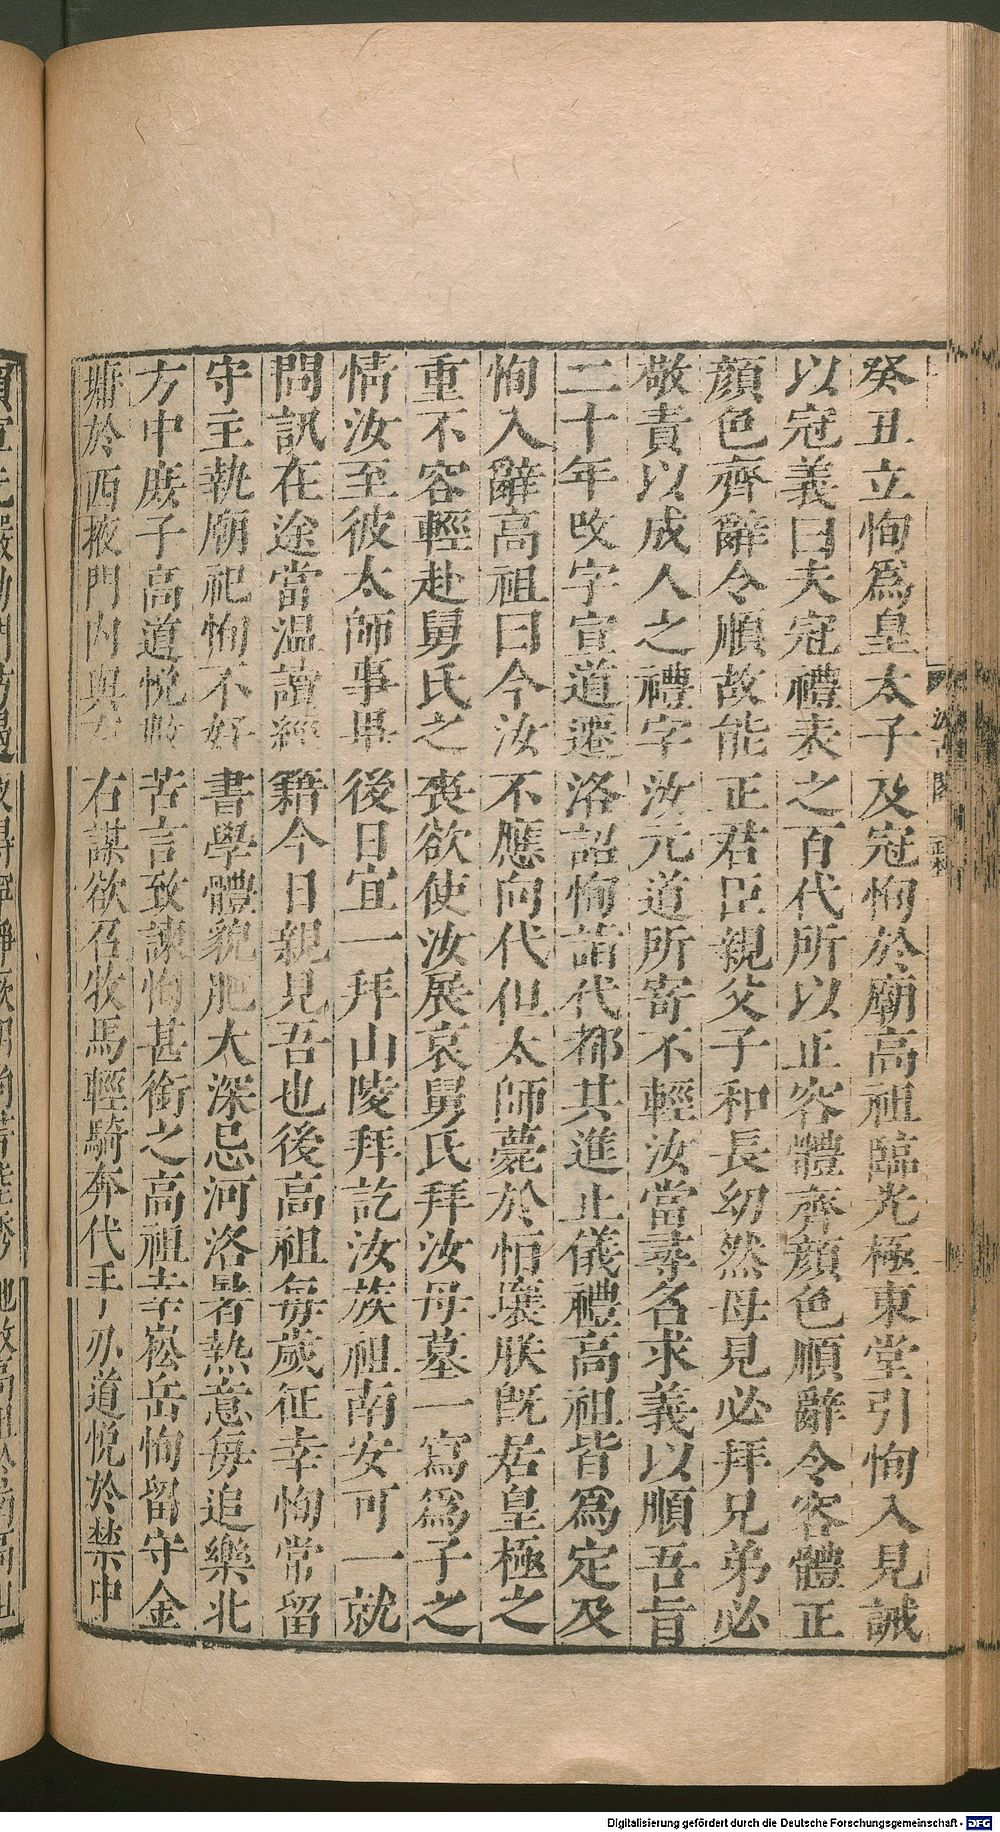 癸丑立恂為皇太子及冠恂於廟高祖臨光極東堂引恂入見誡
以冠義曰夫冠禮表之百代所以正容體齊顏色順辭令容體正
顏色齊辭令順故能正君臣親父子和長幼然母見必拜兄弟必
敬責以成人之禮字汝元道所寄不輕汝當尋名求義以順吾旨
二十年改字宣道遷洛詔恂詣代都其進止儀禮高祖皆為定及
恂入辭高祖曰今汝不應向代但太師薨於恒壤朕既居皇極之
重不容輕赴舅氏之喪欲使汝展哀舅氏拜汝母墓一寫為子之
情汝至彼太師事畢後日宜一拜山陵拜訖汝族祖南安可一就
問訊在途當温讀經籍今日親見吾也後高祖每歲征幸恂常留
守主執廟祀恂不好書學體貌肥大深忌河洛暑熱意每追樂北
方中庶子高道悅數苦言致諫恂甚銜之高祖幸崧岳恂留守金
墉於西掖門內與左右謀欲召牧馬輕騎奔代手刃道悅於禁中
Digitalisierung gefördert durch die Deutsche Forschungsgemeinschaft - DFG